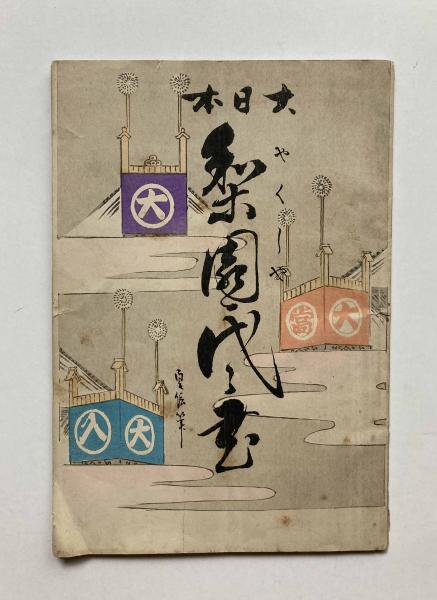 大日本
やくしや
梨園代々書
貞信筆
大
大當
大入